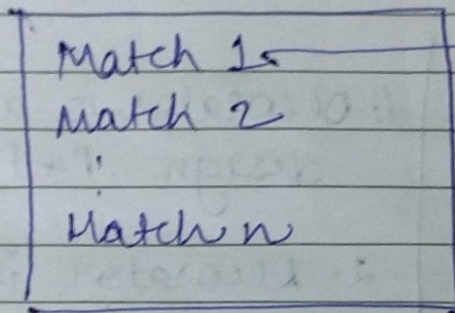 Match 1
Match 2
:
Match n